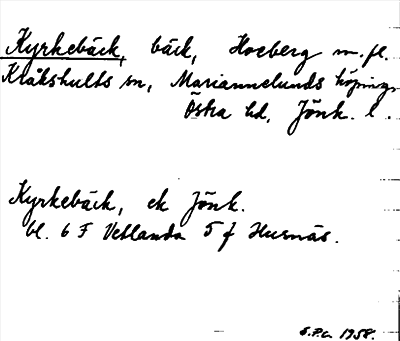 Kyrkebäck, bäck, Hoeberg m. fl.
Kråkshults sn, Mariannelunds köping,
Östra hd, Jönk. l.
Kyrkebäck, ek Jönk.
bl. 6 F Vetlanda 5 f Husnäs.
S.P.C. 1958.